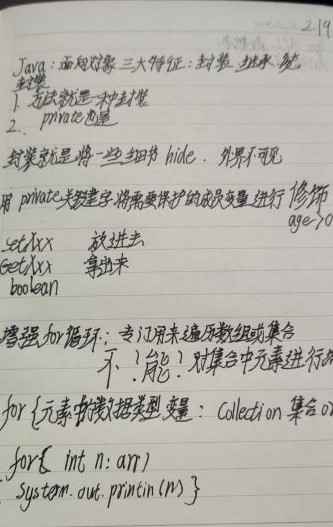 2.19
Java：面向对象三大特征：封装 继承 多
封装
1. 方法就是一种封装
2. private也是
封装就是将一些细节 hide. 外界不可见
用 private关键字将需要保护的成员变量进行修饰
age>0
setXxx 放进去
GetXxx 拿出来
boolean
增强for循环：专门用来遍历数组或集合
不！能！对集合中元素进行
for {元素中的数据类型 变量：Collection 集合 or
for{ int n: arr)
System.out.printin(n) }